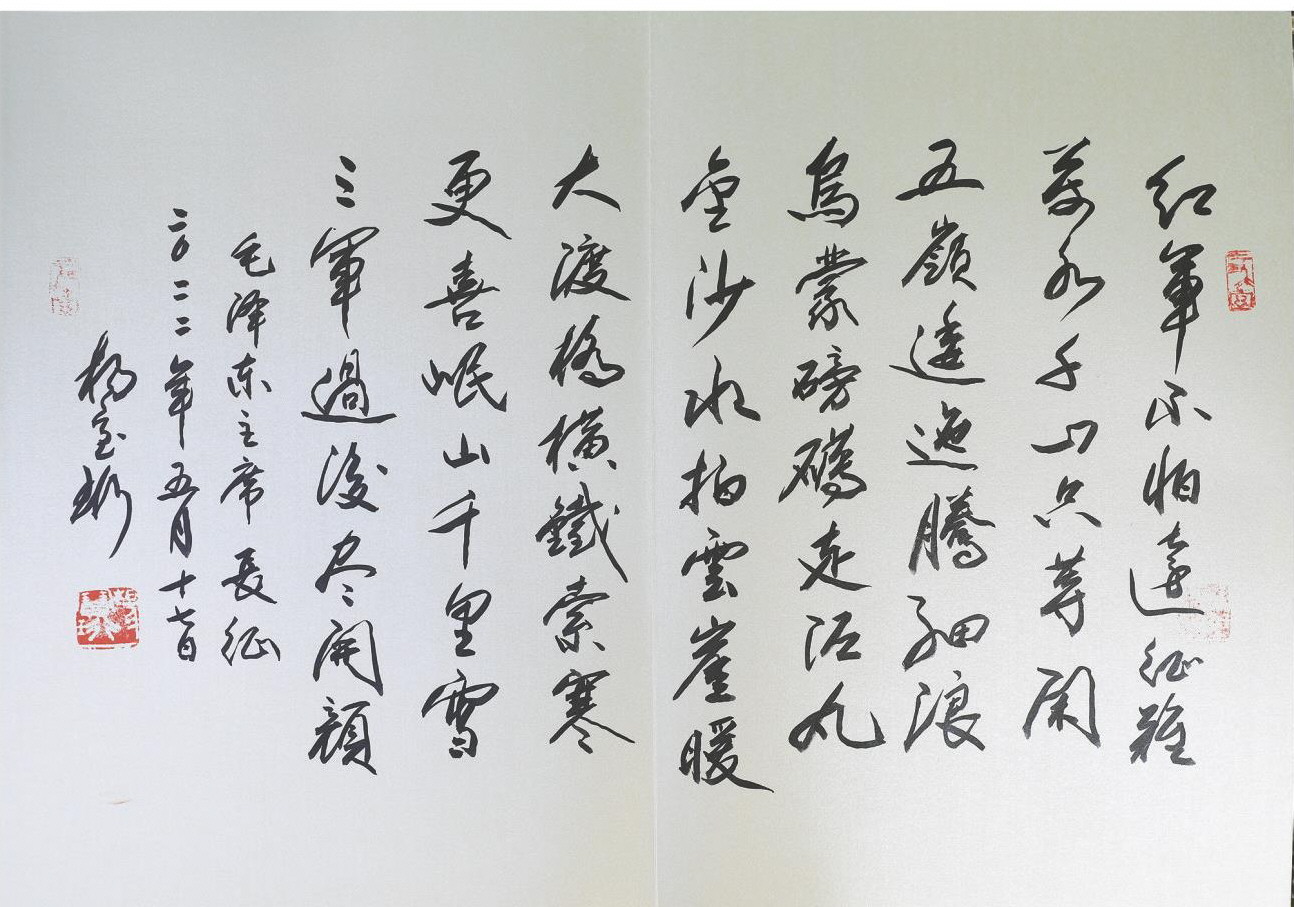 紅軍不怕遠征難
萬水千山只等閑
五嶺逶迤騰細浪
烏蒙磅礴走泥丸
金沙水拍雲崖暖
大渡橋橫鐵索寒
更喜岷山千里雪
三軍過後尽開顏
毛泽东主席 長征
二〇二二年五月十七日
楊